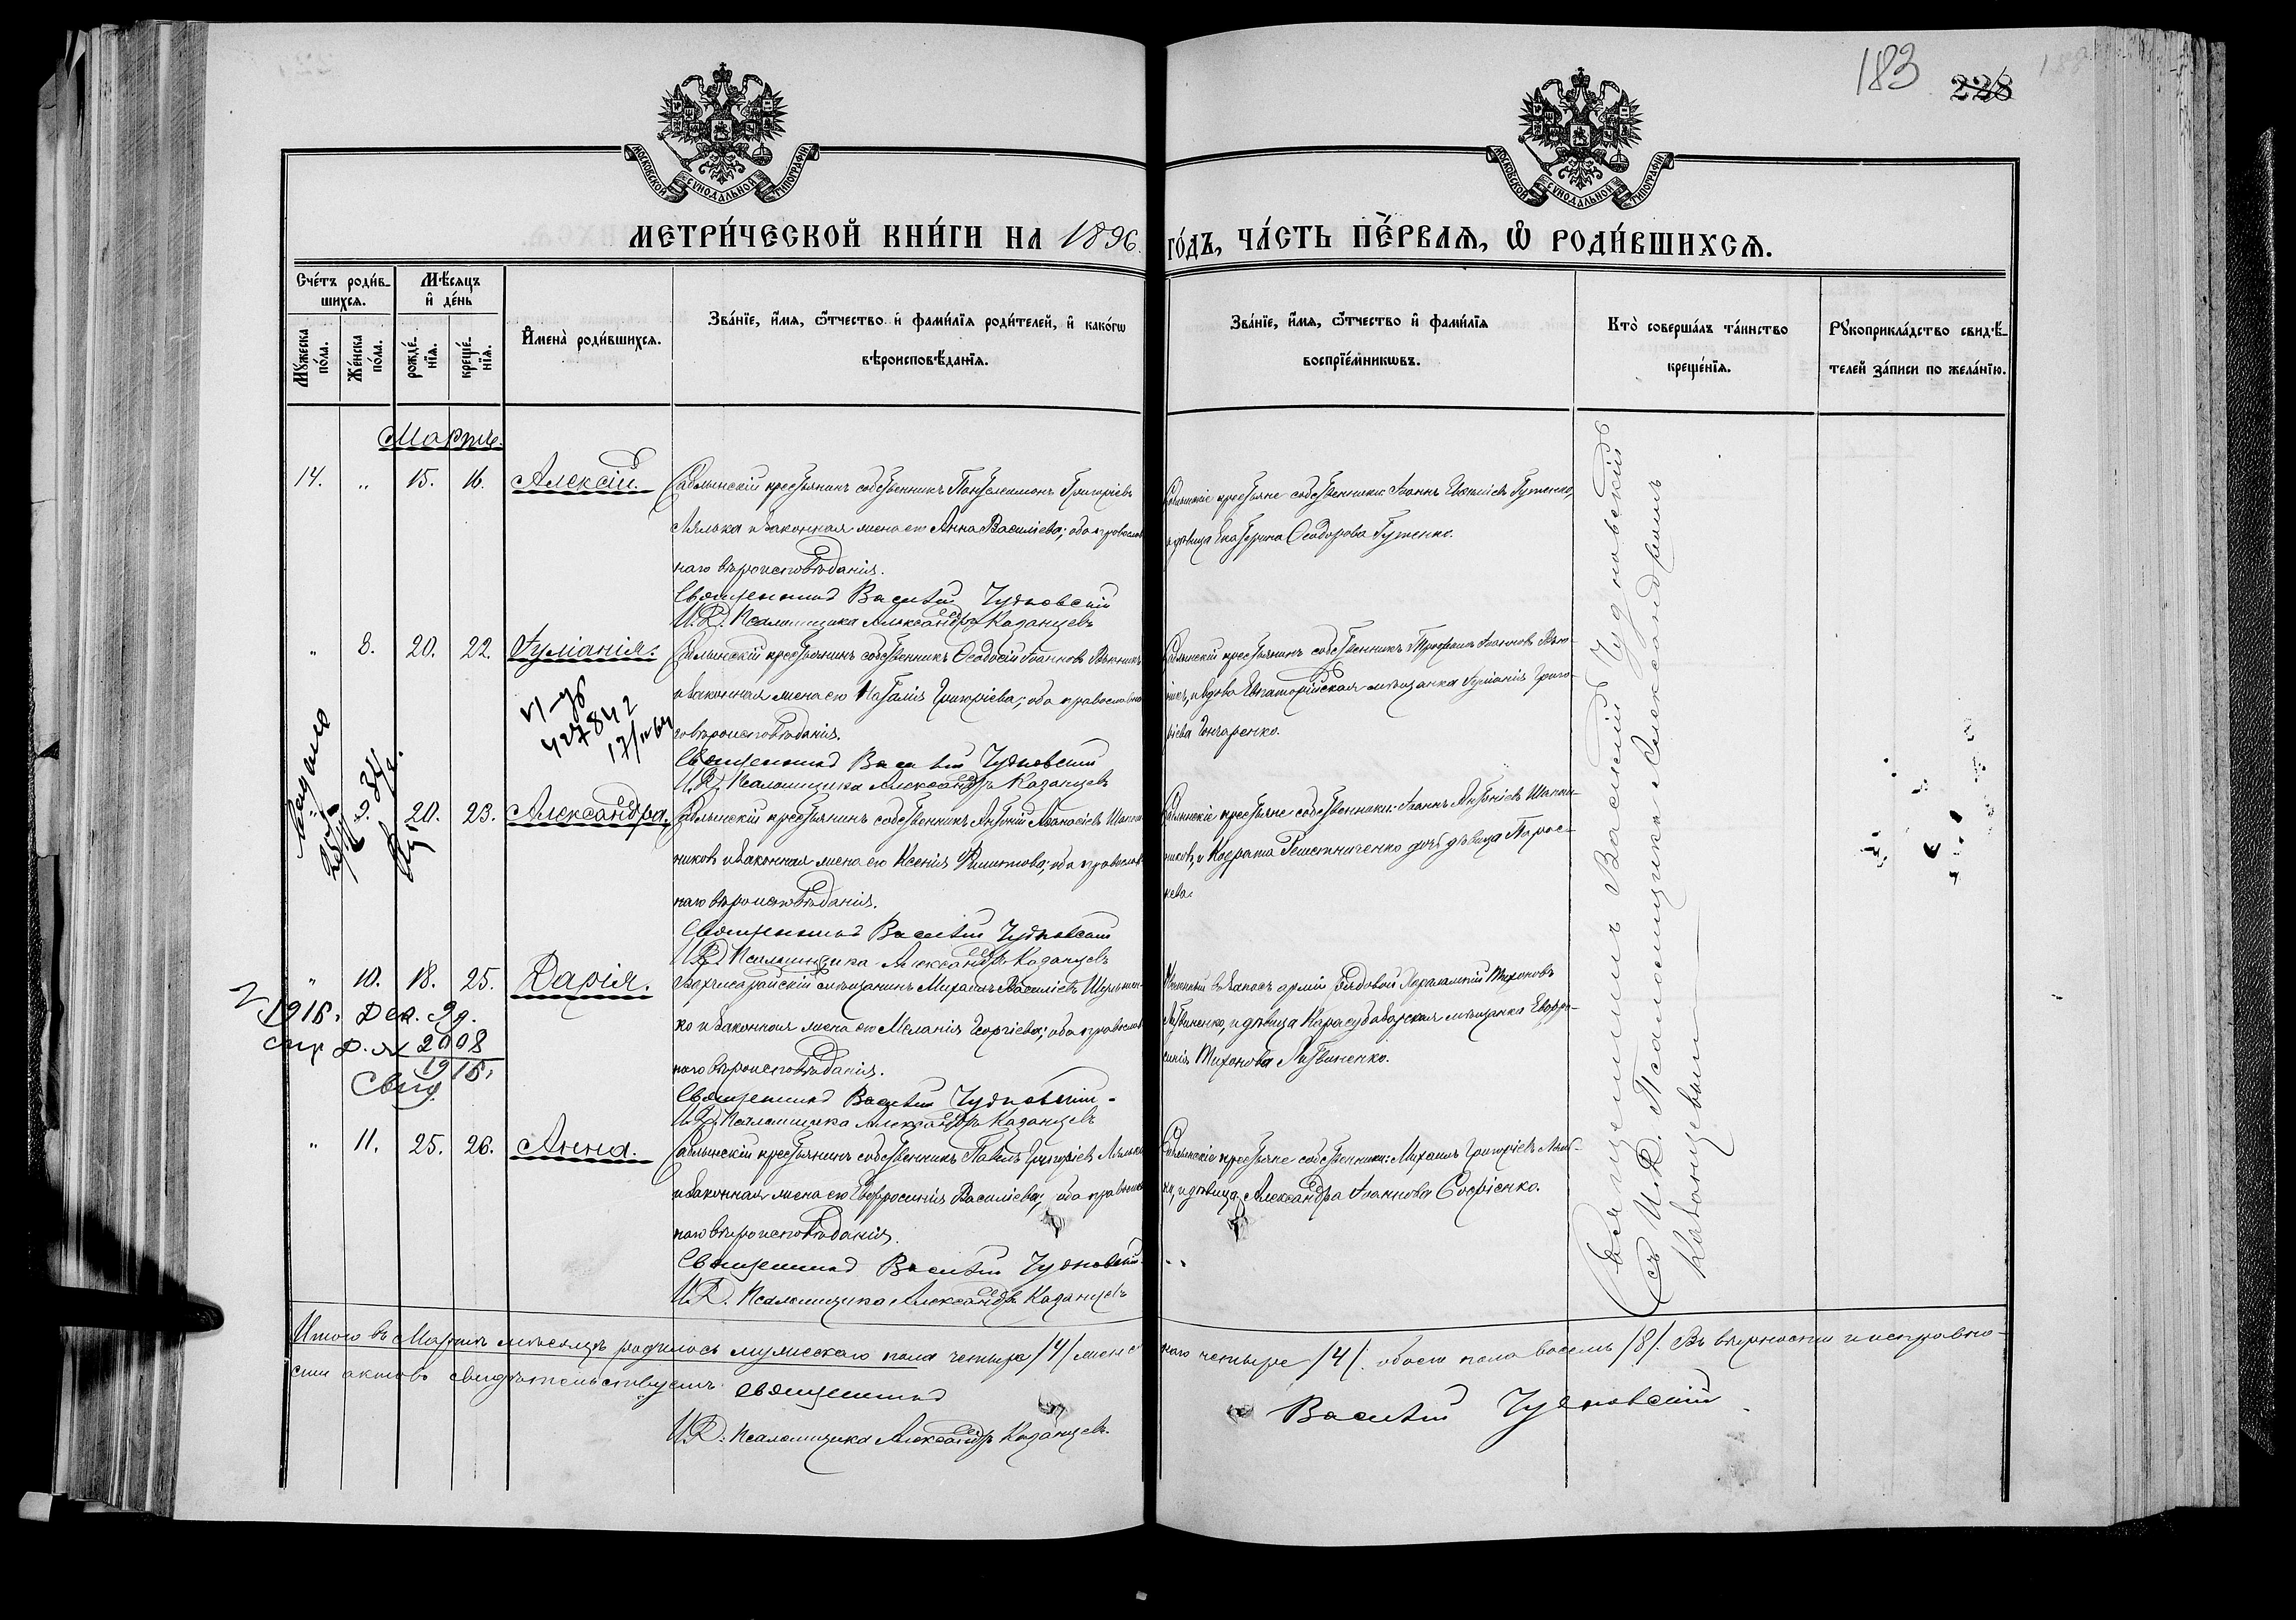 183 228
МОСКОВСКОЙ СѴНОДАЛЬНОЙ ТИПОГРАФІИ
МОСКОВСКОЙ СѴНОДАЛЬНОЙ ТИПОГРАФІИ
МЕТРИ́ЧЕСКОЙ КНИ́ГИ НА 1896 ГО́ДЪ, ЧА́СТЬ ПЕ́РВАЯ, Ѡ РОДИ́ВШИХСѦ.
Счетъ родив-
шихся.
Мѣсяцъ
и день
Мужеска
пола.
Женска
пола.
рожде-
нія.
креще-
нія.
Имена родившихся.
Званіе, имя, ѿтчество и фамилія родителей, и какогѡ
вѣроисповѣданія.
Званіе, имя, ѿтчество и фамилія
воспріемникѡвъ.
Кто совершалъ таинство
крещенія.
Рукоприкладство свидѣ-
телей записи по желанію.
Мартъ.
14. „ 15. 16. Алексій.
Саблынскій крестьянинъ собственникъ Пантелеимонъ Григоріевъ
Лялька и законная жена его Анна Василіева; оба православ
наго вѣроисповѣданія.
Священникъ Василій Чудновскій
И. Д. Псаломщика Александръ Казанцевъ
Саблынскіе крестьяне собственники: Іоаннъ Евѳиміевъ Гуменко,
и дѣвица Екатерина Ѳеодорова Гуменко.
„ 8. 20. 22. Іуліанія.
Саблынскій крестьянинъ собственникъ Ѳеодосій Іоанновъ
и законная жена его Наталія Григоріева; оба православна
го вѣроисповѣданія.
Священникъ Василій Чудновскій
И. Д. Псаломщика Александръ Казанцевъ
Саблынскій крестьянинъ собственникъ Трофимъ Іоанновъ
никъ, и вдова Евпаторійская мѣщанка Іуліанія Григо-
ріева Гончаренко.
427842
„ 9. 20. 23. Александра.
Саблынскій крестьянинъ собственникъ Антоній Аѳанасіевъ Шапош
никовъ и законная жена его Ксенія Филиппова; оба православ
наго вѣроисповѣданія.
Священникъ Василій Чудновскій
И. Д. Псаломщика Александръ Казанцевъ
Саблынскіе крестьяне собственники: Іоаннъ Антоніевъ Шапош-
никовъ, и Кодрата Решетниченко дочь дѣвица Парас-
кева.
„ 10. 18. 25. Дарія.
Бахчисарайскій мѣщанинъ Михаилъ Василіевъ
ко и законная жена его Меланія Георгіева; оба православ
наго вѣроисповѣданія.
Священникъ Василій Чудновскій
И. Д. Псаломщика Александръ Казанцевъ
въ запасъ арміи рядовой Харалампій Тихоновъ
Литвиненко, и дѣвица Карасубазарская мѣщанка Евфро-
синія Тихонова Литвиненко.
1915. Дек. 9д.
2008
1915
Свид
„ 11. 25. 26. Анна.
Саблынскій крестьянинъ собственникъ Павелъ Григоріевъ Лялька
и законная жена его Евфросинія Василіева; оба православ
наго вѣроисповѣданія.
Священникъ Василій Чудновскій
И. Д. Псаломщика Александръ Казанцевъ
Саблынскіе крестьяне собственники: Михаилъ Григоріевъ Ляль-
ка, и дѣвица Александра Іоаннова Софіенко.
Священникъ Василій Чудновскій
съ И. Д. Псаломщика Александромъ
Казанцевымъ
Итого въ Мартѣ мѣсяцѣ родилось мужескаго пола четыре /4/ женс
каго четыре /4/. обоего пола восемь /8/. Въ вѣрности и исправно-
сти актовъ свидѣтельствуемъ: Священникъ Василій Чудновскій
И. Д. Псаломщика Александръ Казанцевъ.